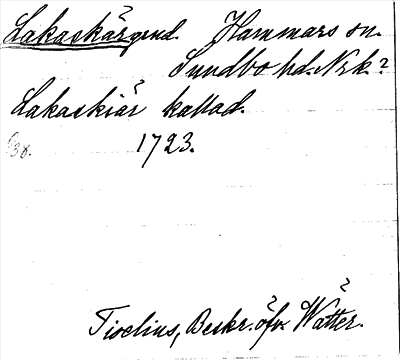 Lakaskärgrnd. Hammars sn.
Sundbo hd. Nrk.?
Lakaskiär kallad.
1723.
Tiselius, Beskr. öfv. Wätter.